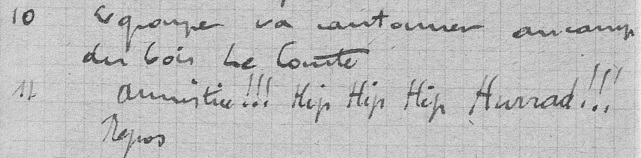 10 Le groupe va cantonner au camp
du bois Le Comte
11 Armistice!!! Hip Hip Hip Hurrad!!!
Repos